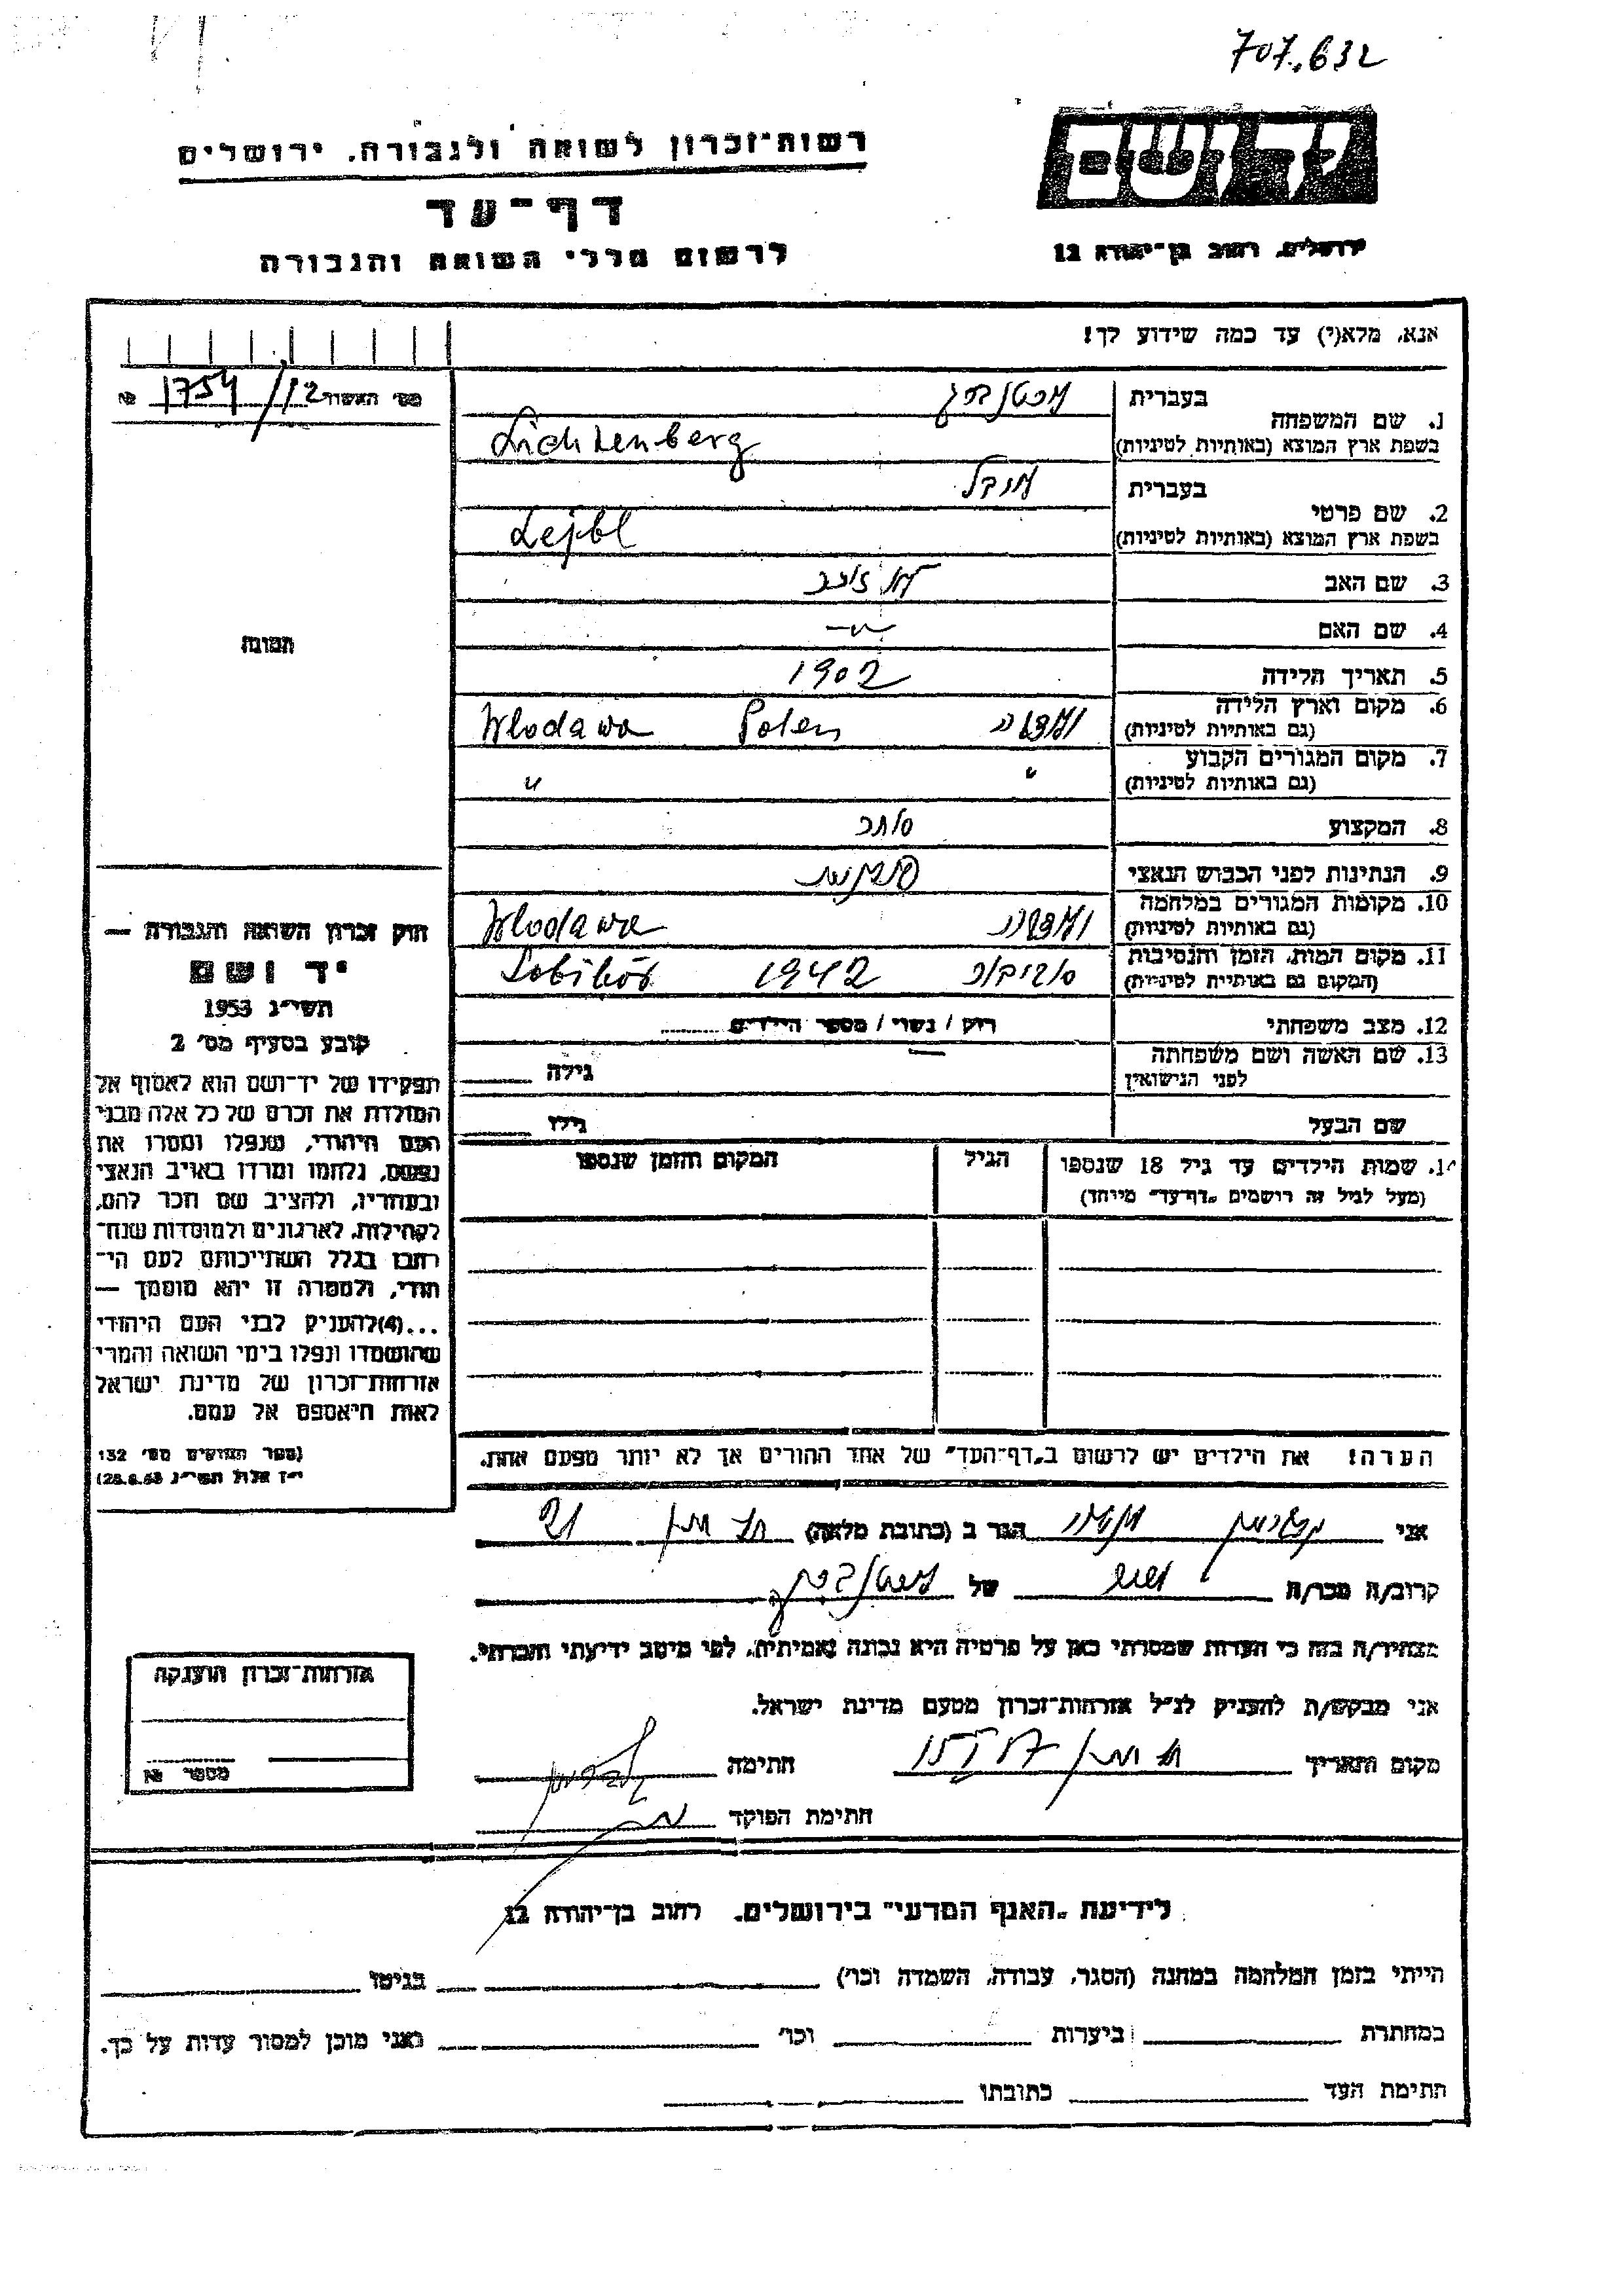 707.632
רשות־זכרון לשואה ולגבורה, ירושלים
יד ושם
דף־עד
לרשום חללי השואה והגבורה
ירושלים, רחוב בן־יהודה 12
אנא, מלא(י) עד כמה שידוע לך!
מס' האשור 1754/12 №
1. שם המשפחה
בעברית ליכטנברג
בשפת ארץ המוצא (באותיות לטיניות) Lichtenberg
2. שם פרטי
בעברית לייבל
בשפת ארץ המוצא (באותיות לטיניות) Lejbl
3. שם האב
4. שם האם
5. תאריך הלידה 1902
6. מקום וארץ הלידה ולודבה Polen Wlodawa
(גם באותיות לטיניות)
7. מקום המגורים הקבוע " "
(גם באותיות לטיניות)
8. המקצוע סוחר
9. הנתינות לפני הכבוש הנאצי פולנית
10. מקומות המגורים במלחמה ולודבה Wlodawa
(גם באותיות לטיניות)
11. מקום המות, הזמן והנסיבות סוביבור 1942 Sobibór
(המקום גם באותיות לטיניות)
12. מצב משפחתי רווק / נשוי / מספר הילדים
13. שם האשה ושם משפחתה
לפני הנישואין גילה
שם הבעל גילו
14. שמות הילדים עד גיל 18 שנספו הגיל המקום והזמן שנספו
(מעל לגיל זה רושמים "דף־עד" מיוחד)
הערה! את הילדים יש לרשום ב"דף־העד" של אחד ההורים אך לא יותר מפעם אחת.
תמונה
חוק זכרון השואה והגבורה —
יד ושם
תשי"ג 1953
קובע בסעיף מס' 2
תפקידו של יד־ושם הוא לאסוף אל
המולדת את זכרם של כל אלה מבני
העם היהודי, שנפלו ומסרו את
נפשם, נלחמו ומרדו באויב הנאצי
ובעוזריו, ולהציב שם וזכר להם,
לקהילות, לארגונים ולמוסדות שנח־
רבו בגלל השתייכותם לעם הי־
הודי, ולמטרה זו יהא מוסמך —
...(4) להעניק לבני העם היהודי
שהושמדו ונפלו בימי השואה והמרי
אזרחות־זכרון של מדינת ישראל
לאות היאספם אל עמם.
(ספר החוקים מס' 132
י"ז אלול תשי"ג 28.8.53)
אני הגר ב (כתובת מלאה)
קרוב/ה מכר/ה של ליכטנברג
מצהיר/ה בזה כי העדות שמסרתי כאן על פרטיה היא נכונה ואמיתית, לפי מיטב ידיעתי והכרתי.
אני מבקש/ת להעניק לנ"ל אזרחות־זכרון מטעם מדינת ישראל.
מקום ותאריך חתימה
חתימת הפוקד
אזרחות־זכרון הוענקה
מספר №
לידיעת "האגף המדעי" בירושלים, רחוב בן־יהודה 12
הייתי בזמן המלחמה במחנה (הסגר, עבודה, השמדה וכו') בגיטו
במחתרת ביערות וכו' ואני מוכן למסור עדות על כך.
חתימת העד כתובתו